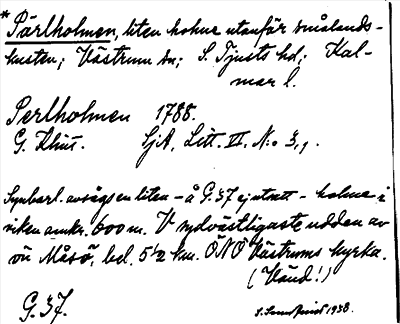 * Pärlholmen, liten holme utanför smålands-
kusten; Västrum sn; S. Tjusts hd; Kal-
mar l.
Perlholmen 1788.
G. Klint. SjA, Litt. VI. N:o 3,1.
Synbarl. avsågs en liten - å G.37 ej utsatt - holme i
viken omkr. 600 m. V sydvästligaste udden av
ön Måsö, bel. 5 1/2 km. ÖNÖ Västrums kyrka.
(Vänd!)
G.37. 1938.